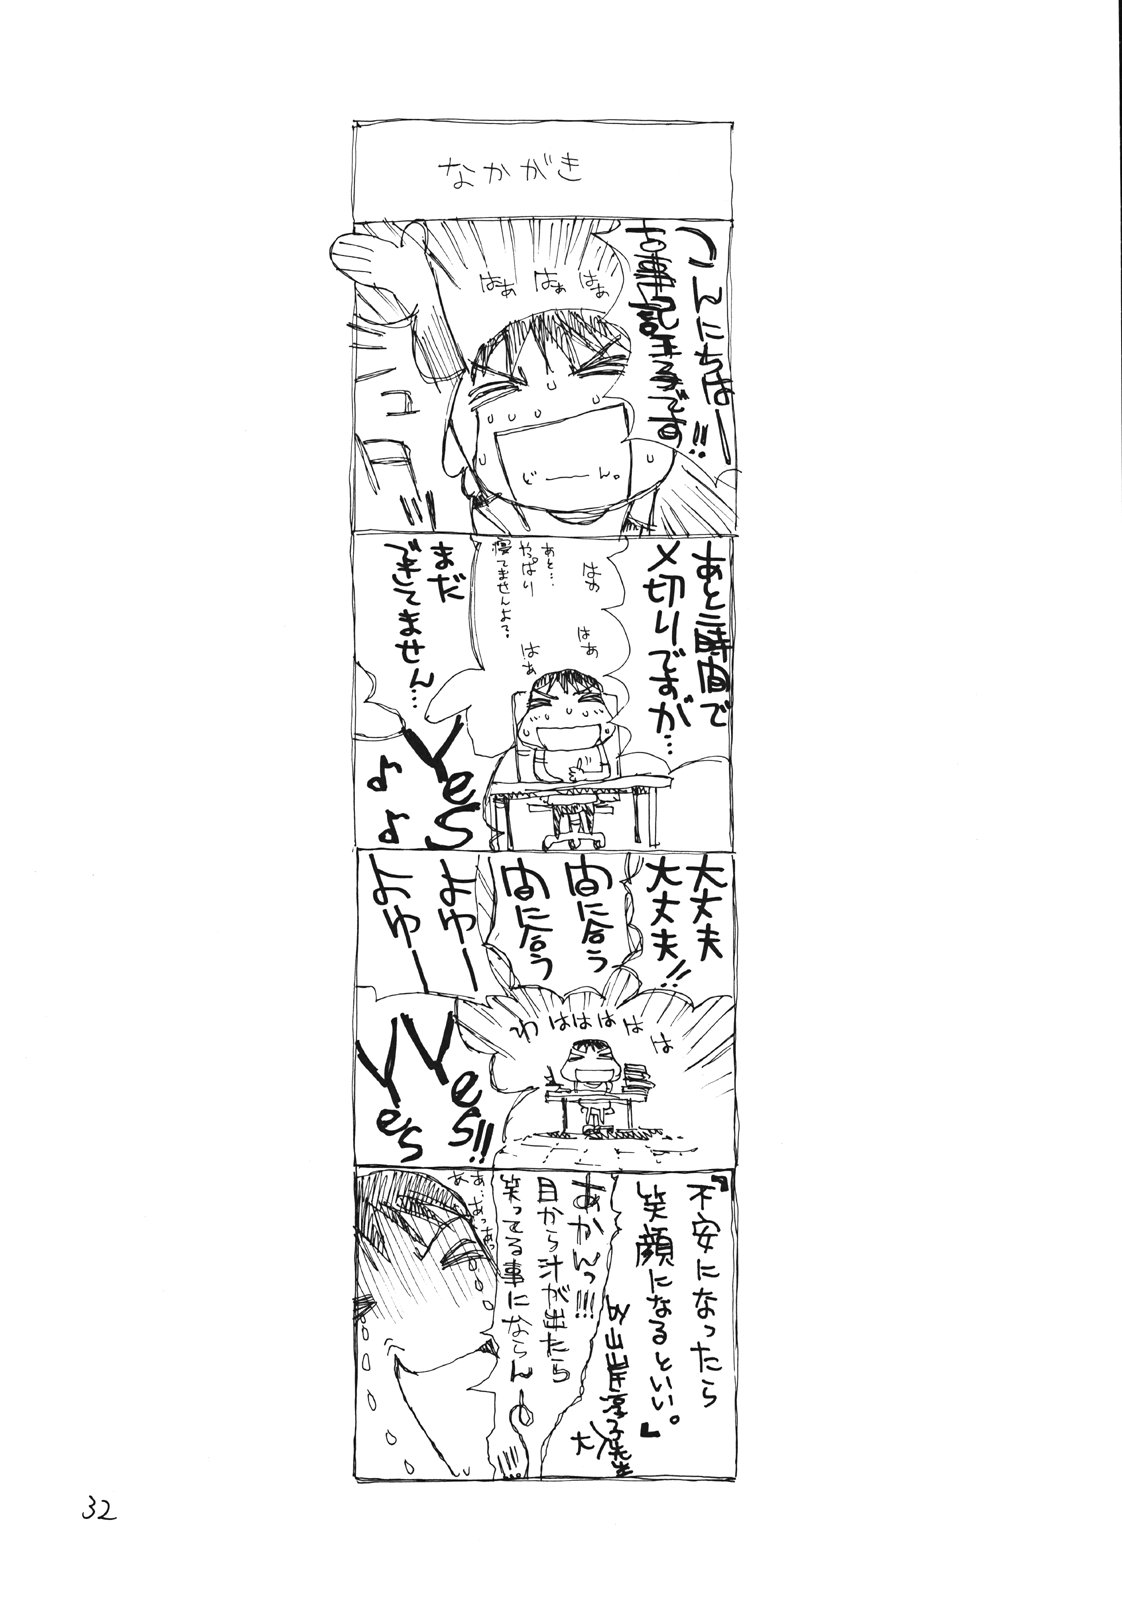 なかがき
こんにちはー!!
はぁ はぁ はぁ
じーーん。
あと三時間で
〆切りですが…
はぁ
はぁ
はぁ
あと…
やっぱり
寝てませんよ?
まだ
できてません…
Yes
♪
♪
大丈夫
大丈夫!!
間に合う
間に合う
よゆー
よゆー
わはははは
Yes!!
Yes
『不安になったら
笑顔になるといい。』
by山岸凉子先生
あかんっ!!!
目から汁が出たら
笑ってる事にならんー
32